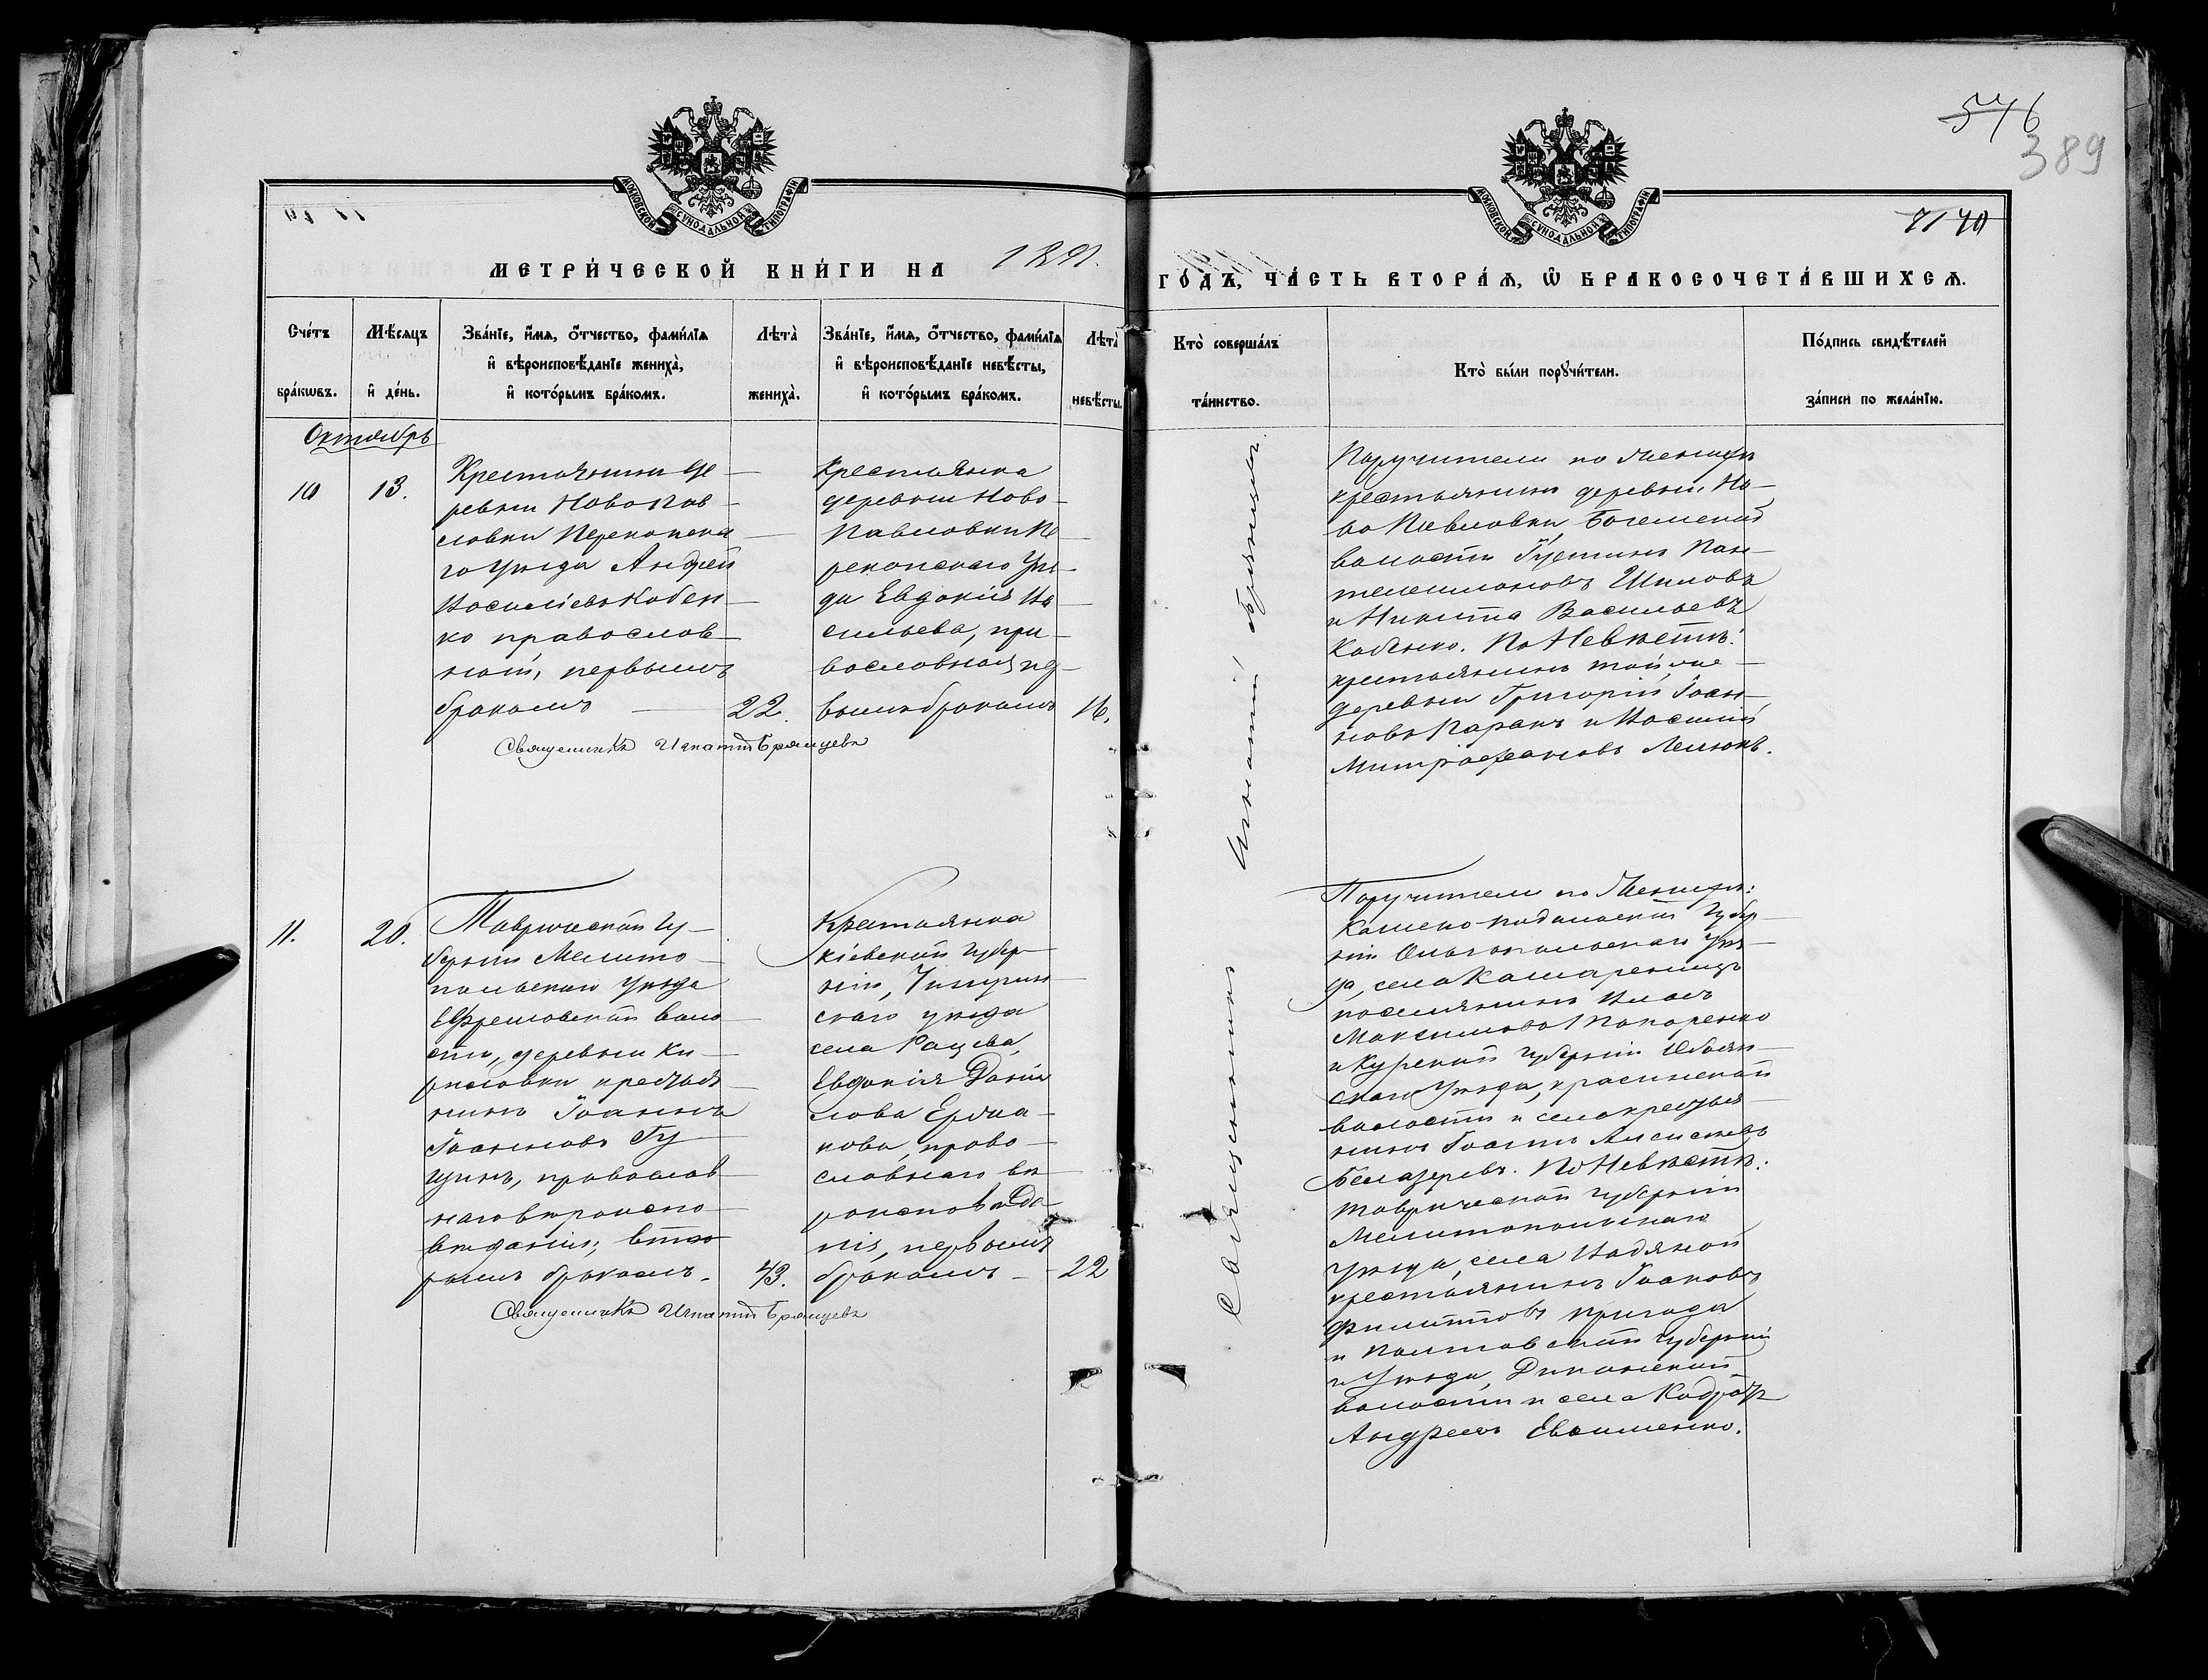 546
389
МОСКОВСКОЙ СѴНОДАЛЬНОЙ ТИПОГРАФІИ
МОСКОВСКОЙ СѴНОДАЛЬНОЙ ТИПОГРАФІИ
МЕТРИ́ЧЕСКОЙ КНИ́ГИ НА 1891.
ГО́ДЪ, ЧА́СТЬ ВТОРА́Ѧ, Ѽ БРАКОСОЧЕТА́ВШИХСѦ.
Сче́тъ бра́кѡвъ.
Мѣ́сѧцъ и҆ де́нь.
Зва́нїе, и҆́мѧ, ѻ҆́тчество, фами́лїѧ
и҆ вѣроисповѣ́данїе жениха̀,
и҆ кото́рымъ бра́комъ.
Лѣта̀ жениха̀.
Зва́нїе, и҆́мѧ, ѻ҆́тчество, фами́лїѧ
и҆ вѣроисповѣ́данїе невѣ́сты,
и҆ кото́рымъ бра́комъ.
Лѣта̀ невѣ́сты.
Кто̀ соверша́лъ
та́инство.
Кто̀ бы́ли порꙋчи́тели.
По́дпись свидѣ́телей
за́писи по жела́нїю.
Октябрь
10
13.
Крестьянинъ де-
ревни Новопав-
ловки Перекопска-
го уѣзда Андрей
Василіевъ Кобен-
ко православ-
ный, первымъ
бракомъ
22.
крестьянка
деревни Ново-
Павловки Пе-
рекопскаго Уѣз-
да Евдокія Ва-
сильева, пра-
вославная, пер-
вымъ бракомъ
16.
Священникъ Игнатій Брянцевъ
Священникъ Игнатій Брянцевъ
Поручители по женихѣ
крестьянинъ деревни Но-
во Павловки Богемской
волости Іустинъ Пан-
телеимоновъ Шиловъ
и Никита Васильевъ
Кобенко. По Невѣстѣ:
крестьянинъ той же
деревни Григорій Іоан-
новъ Паракъ и Василій
Митрофановъ
11.
20.
Таврической гу-
берніи Мелито-
польскаго уѣзда
Ефремовской воло-
сти, деревни Ки-
риловки крестья-
нинъ Іоаннъ
Іоанновъ Гу-
щинъ, православ-
наго вѣроиспо-
вѣданія; вто-
рымъ бракомъ.
43.
Крестьянка
Кіевской губер-
ніи, Чигирин-
скаго уѣзда
села Рацева,
Евдокія Даніи-
лова Ерма-
кова, право-
славнаго вѣ-
роисповѣда-
нія, первымъ
бракомъ
22
Священникъ Игнатій Брянцевъ
Поручители по Женихѣ:
Каменс-подольской Губер-
ніи Ольгопольскаго Уѣз-
да, села
поселянинъ Власъ
Максимовъ Токаренко
и Курской губерніи Обоян-
скаго Уѣзда, красненской
волости и села крестья-
нинъ Іоаннъ Алексѣевъ
Белозеровъ. По Невѣстѣ:
Таврической губерніи
Мелитопольскаго
уѣзда, села Водяной
крестьянинъ Іаковъ
Филипповъ Пригода
и Полтавской губерніи
и Уѣзда, Диканской
волости и села
Андрей Евтименко.